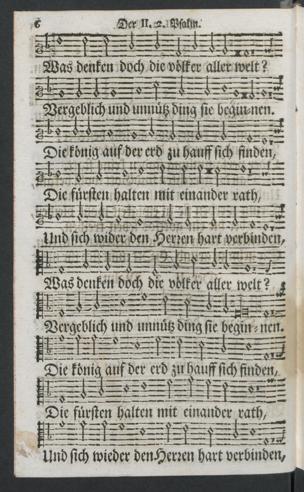 6 Der II. 2. Psalm.
Was denken doch die völker aller welt?
Vergeblich und unnütz ding sie begin-nen.
Die könig auf der erd zu hauff sich finden,
Die fürsten halten mit einander rath,
Und sich wider den Herren hart verbinden,
Was denken doch die völker aller welt?
Vergeblich und unnütz ding sie begin-nen.
Die könig auf der erd zu hauff sich finden,
Die fürsten halten mit einander rath,
Und sich wieder den Herren hart verbinden,